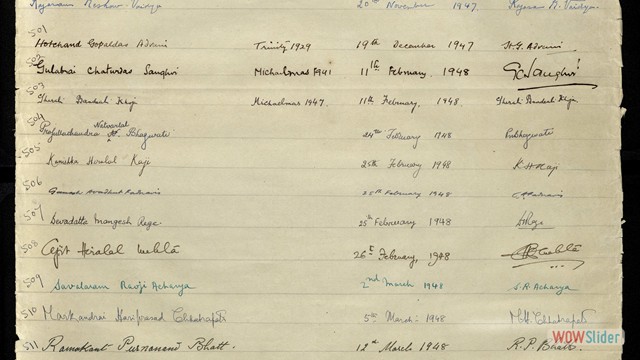 20th November 1947.
501
Hotchand Gopaldas Advani Trinity 1929 19th December 1947 H.G. Advani
502
Gulabrai Chaturdas Sanghvi Michaelmas 11th February, 1948 GCSanghvi
503
Michaelmas 1947. 11th February, 1948.
504
Natvarlal
Prafullachandra Bhagwati 24th February 1948 PnBhagwati
505
Kanubha Hiralal Kaji 25th February 1948 K H Kaji
506
25th February 1948
507
Devadatta Mangesh Rege 25th February 1948 DMRege
508
Ajit Hiralal Mehta 26th February, 1948
509
Savalaram Raoji Acharya 2nd March 1948 S. R. Acharya
510
Markandrai Hariprasad Chhatrapati 5th March 1948 M.H. Chhatrapati
511
Ramakant Purnanand Bhatt. 12th March 1948 R. P. Bhatt
WOWSlider